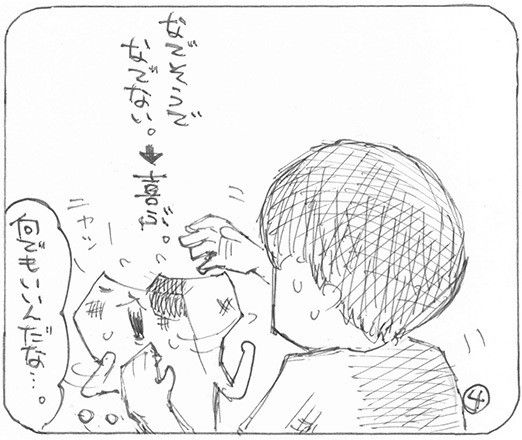 なでそうで
なでない。➡喜ぶ。
ニヤッ
何でもいいんだな…。
④